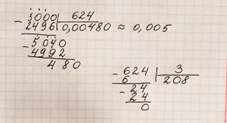 3000 | 624
- 2496 | 0,00480 ≈ 0,005
- 5040
4992
480
- 624 | 3
6 | 208
- 24
24
0